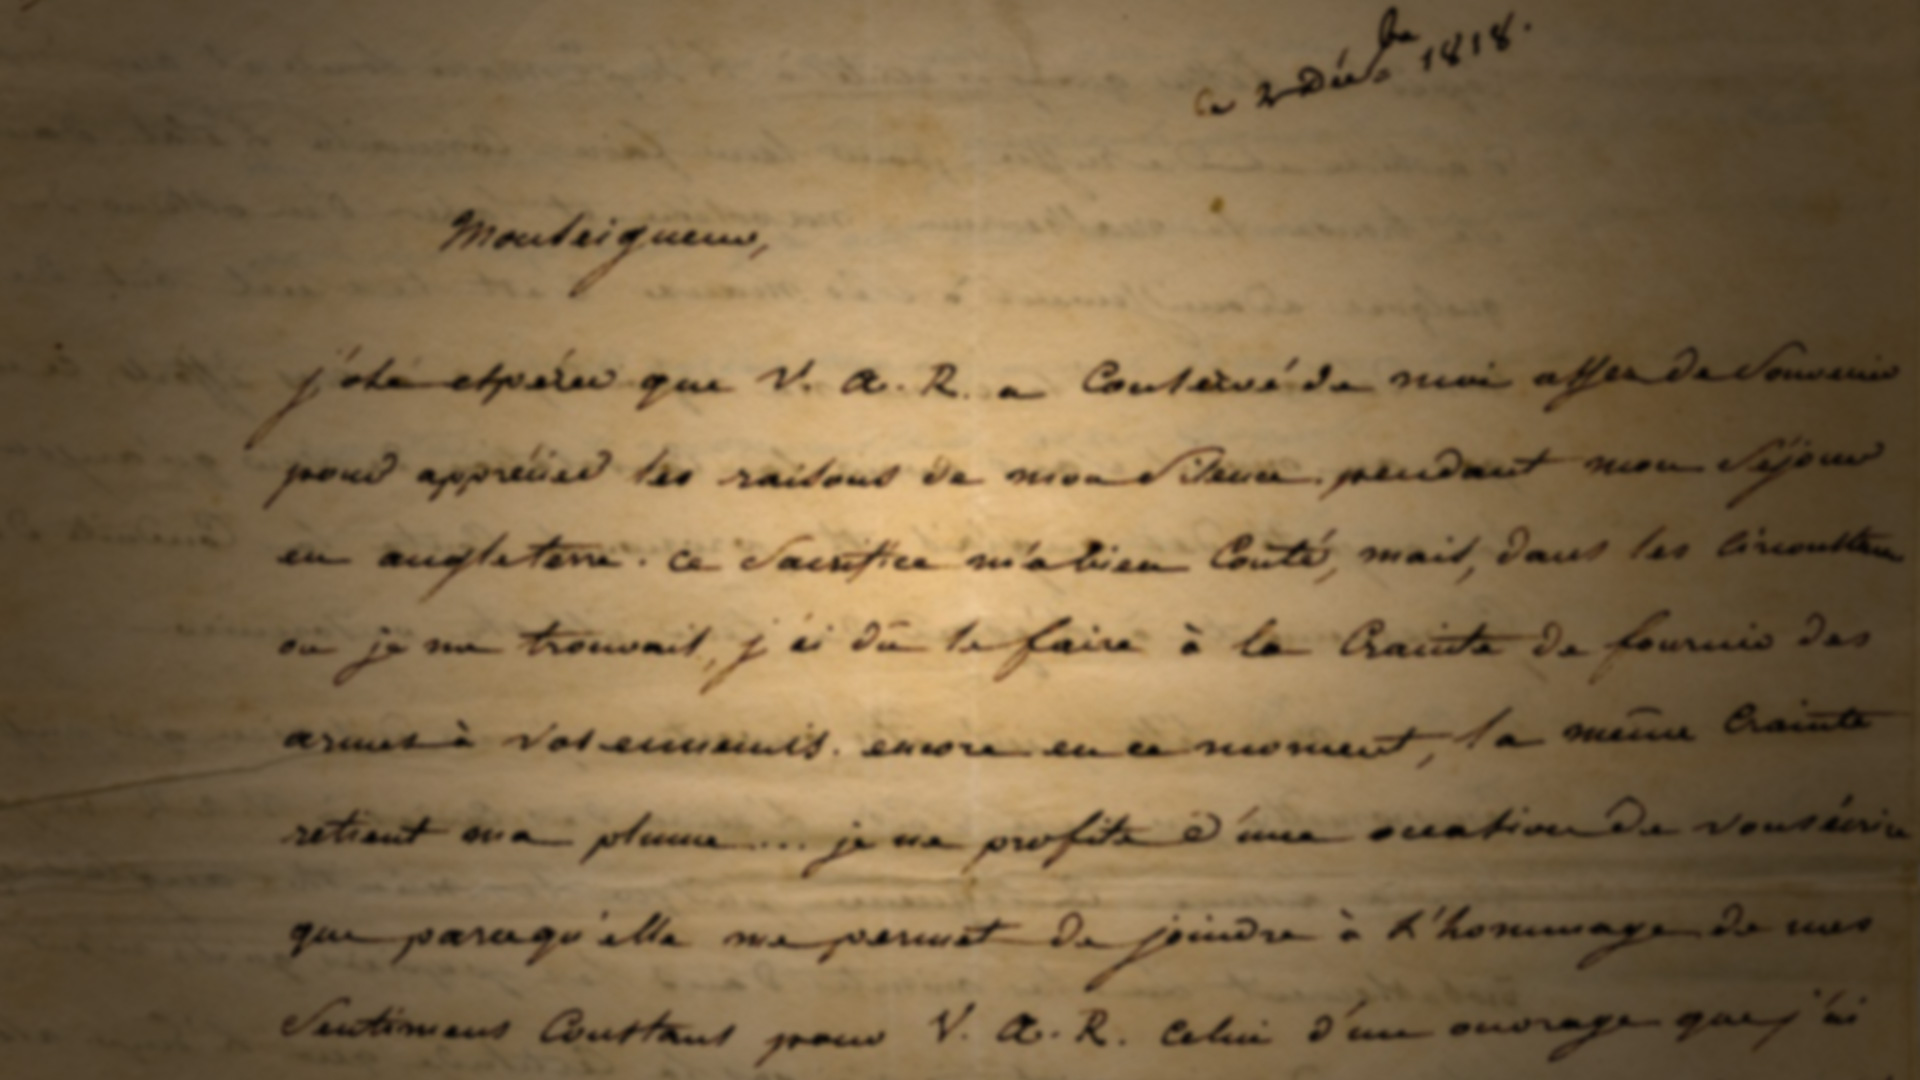 ce 2 Décbre 1818.
Monseigneur,
j'ose espérer que V. A. R. a conservé de moi assez de souvenir
pour apprécier les raisons de mon silence pendant mon séjour
en angleterre. ce sacrifice m'a bien couté, mais, dans les circonstan
ou je me trouvais, j'ai dû le faire à la crainte de fournir des
armes à vos ennemis. encore en ce moment, la même crainte
retient ma plume... je ne profite d'une occasion de vous écrire
que parcequ'elle me permet de joindre à l'hommage de mes
sentimens constans pour V. A. R. celui d'un ouvrage que j'ai